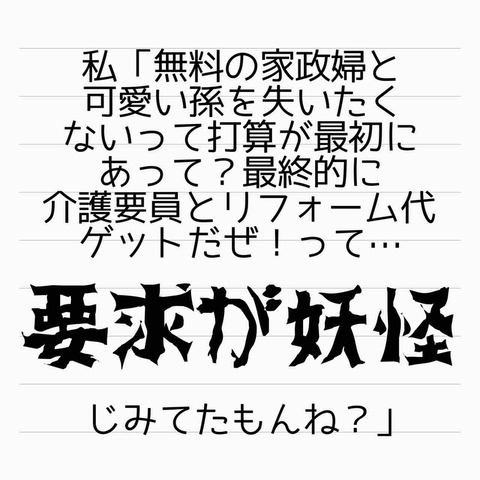 私「無料の家政婦と
可愛い孫を失いたく
ないって打算が最初に
あって？最終的に
介護要員とリフォーム代
ゲットだぜ！って…
要求が妖怪
じみてたもんね？」